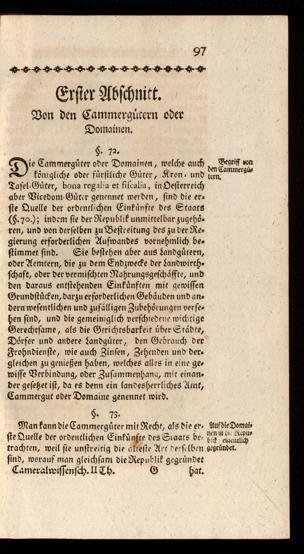 97
Erster Abschnitt.
Von den Cammergütern oder
Domainen.
§. 72.
Die Cammergüter oder Domainen, welche auch
königliche oder fürstliche Güter, Kron- und
Tafel-Güter, bona regalia et fiscalia, in Oesterreich
aber Vicedom-Güter genennet werden, sind die er-
ste Quelle der ordentlichen Einkünfte des Staats
(§. 70.); indem sie der Republik unmittelbar zugehö-
ren, und von derselben zu Bestreitung des zu der Re-
gierung erforderlichen Aufwandes vornehmlich be-
stimmet sind. Sie bestehen aber aus Landgütern,
oder Aemtern, die zu dem Endzwecke der Landwirth-
schaft, oder der vermischten Nahrungsgeschäffte, und
den daraus entstehenden Einkünften mit gewissen
Grundstücken, darzu erforderlichen Gebäuden und an-
dern wesentlichen und zufälligen Zubehörungen verse-
hen sind, und die gemeiniglich verschiedene wichtige
Gerechtsame, als die Gerichtsbarkeit über Städte,
Dörfer und andere Landgüter, den Gebrauch der
Frohndienste, wie auch Zinsen, Zehenden und der-
gleichen zu genießen haben, welches alles in eine ge-
wisse Verbindung, oder Zusammenhang, mit einan-
der gesetzet ist, da es denn ein landesherrliches Amt,
Cammergut oder Domaine genennet wird.
Begriff von
den Cammergü-
tern.
§. 73.
Man kann die Cammergüter mit Recht, als die er-
ste Quelle der ordentlichen Einkünfte des Staats be-
trachten, weil sie unstreitig die älteste Art derselben
sind, worauf man gleichsam die Republik gegründet
Auf die Domai-
nen ist die Repu-
blik eigentlich
gegründet.
Cameralwissensch. II Th. G hat.